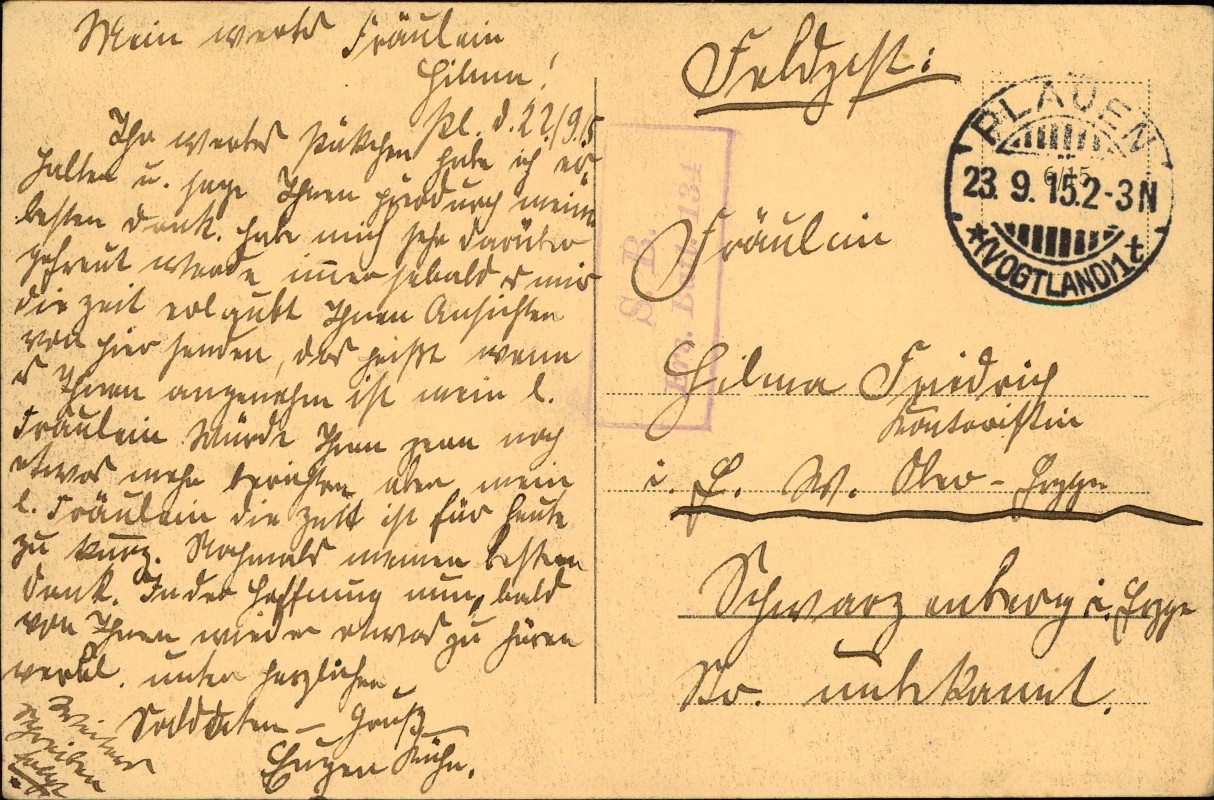 Mein wertes Fräulein
Hilma!
Pl. d. 22/9.15
Ihr wertes Päkchen habe ich er-
halten u. sage Ihnen hierdurch meinen
besten Dank. Habe mich sehr darüber
gefreut werde immer sobald es mir
die Zeit erlaubt Ihnen Ansichten
von hier senden, das heißt wenn
es Ihnen angenehm ist mein l.
Fräulein. Würde Ihnen gern noch
etwas mehr berichten aber mein
l. Fräulein die Zeit ist für heute
zu kurz. Nochmals meinen besten
Dank. In der Hoffnung nun bald
von Ihnen wieder etwas zu hören
verbl. unter herzlichen
Soldaten-Gruß
Eugen Kühn.
Weiteres
Schreiben
folgt
Feldpost:
PLAUEN
23. 9. 15. 2-3 N
*(VOGTLAND) 1 t
6/15
S. B.
Ers. Batl. 134
Fräulein
Hilma Friedrich
Kontoristin
i. F. W. Ober-
Schwarzenberg i. Erzge
Str. unbekannt.